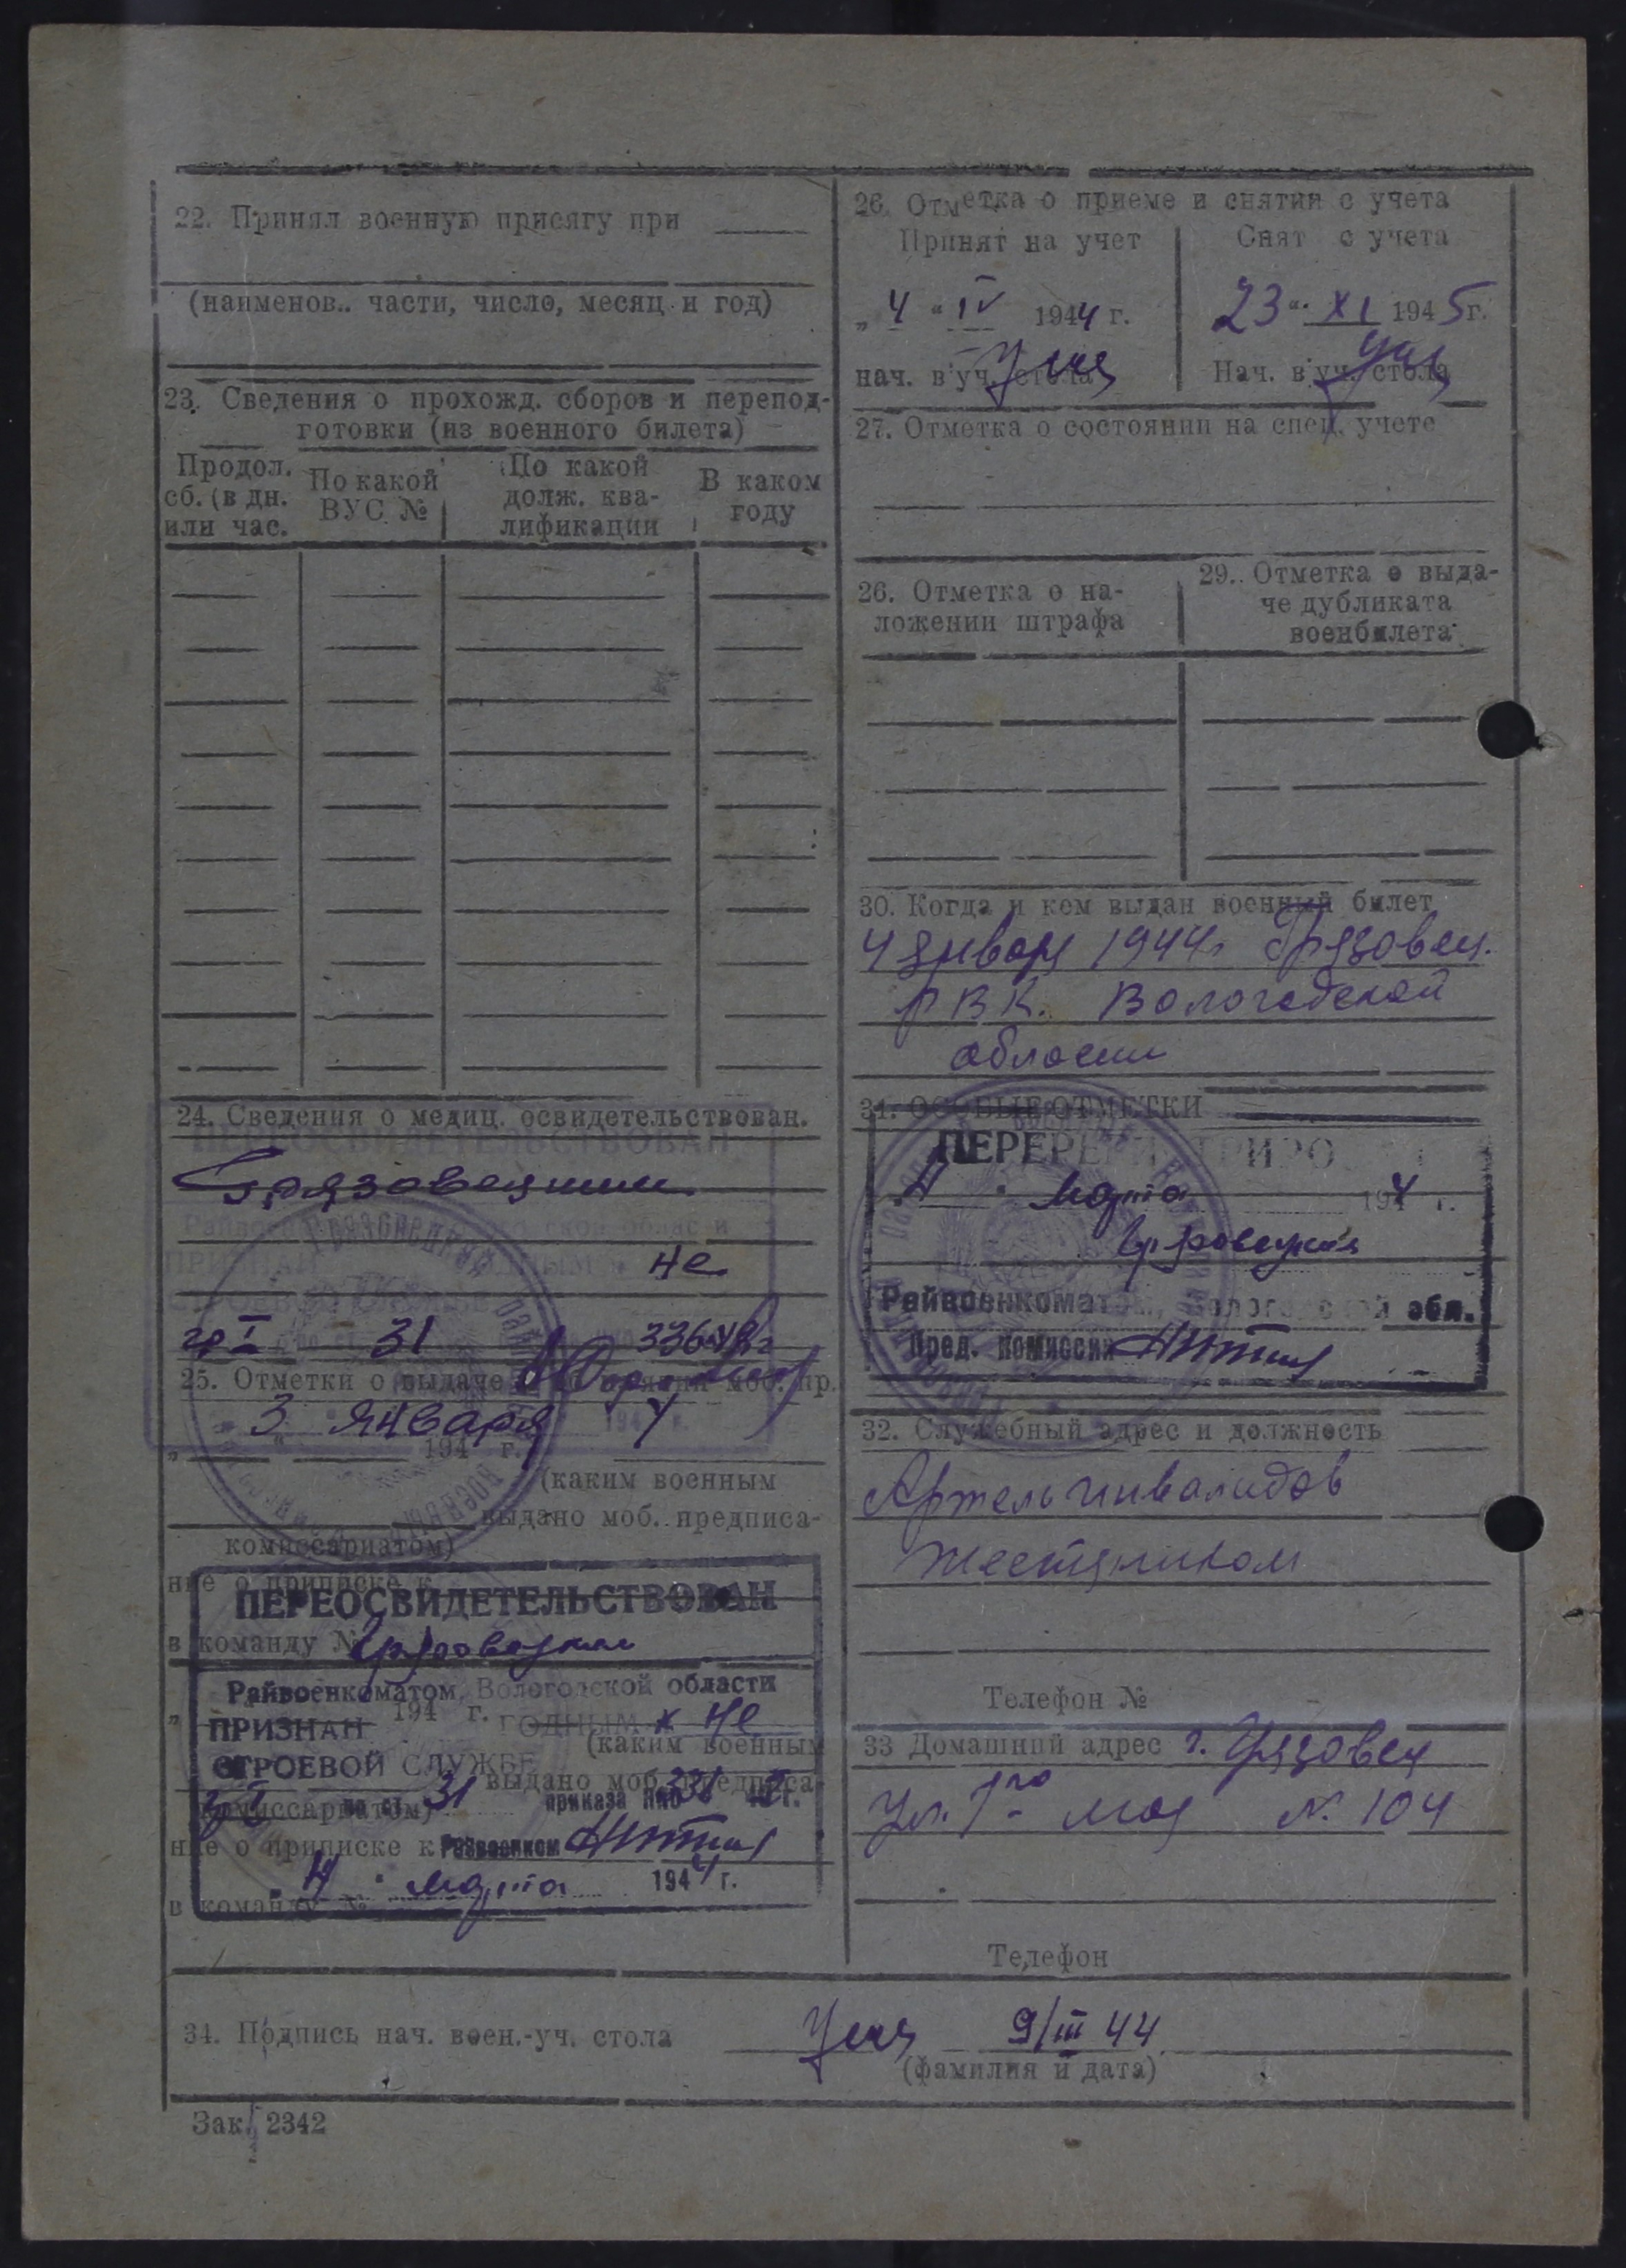 22. Принял военную присягу при
(наименов.. части, число, месяц и год)
23. Сведения о прохожд. сборов и перепод-
готовки (из военного билета)
Продол.
сб. (в дн.
или час.
По какой
ВУС №
По какой
долж. ква-
лификации
В каком
году
24. Сведения о медиц. освидетельствован.
ПЕРЕОСВИДЕТЕЛЬСТВОВАН
Грязовецким
не
гр I 31 336-42г
25. Отметки о выдаче моб. пр.
3 января 1944 г.
„ " 194 г.
(каким военным
комиссариатом) выдано моб. предписа-
ние о приписке к
ПЕРЕОСВИДЕТЕЛЬСТВОВАН
в команду № Грязовецким
Райвоенкоматом, Вологодской области
„ 194 г.
ПРИЗНАН ГОДНЫМ к не
(каким военным
СТРОЕВОЙ СЛУЖБЕ
выдано моб. предписа-
гр I по ст 31 приказа НКО 336 42 г.
комиссариатом)
ние о приписке к Райвоенком
„4" марта 1944 г.
в команду №
26. Отметка о приеме и снятии с учета
Принят на учет
„4" IV 1944 г.
нач. в уч. стола
Снят с учета
23 " XI 1945 г.
Нач. в уч. стола
27. Отметка о состоянии на спец. учете
26. Отметка о на-
ложении штрафа
29.. Отметка о выда-
че дубликата
военбилета
30. Когда и кем выдан военный билет
4 января 1944г Грязовец.
РВК. Вологодской
области
31. ОСОБЫЕ ОТМЕТКИ
ПЕРЕРЕГИСТРИРО
4 " марта 1944 г.
Грязовецким
Райвоенкоматом, Вологодской обл.
Пред. комиссии
32. Служебный адрес и должность
Артель инвалидов
жестянником
Телефон №
33 Домашний адрес г. Грязовец
ул. 1го мая № 104
Телефон
34. Подпись нач. воен.-уч. стола 9/III 44
(фамилия и дата)
Зак. 2342